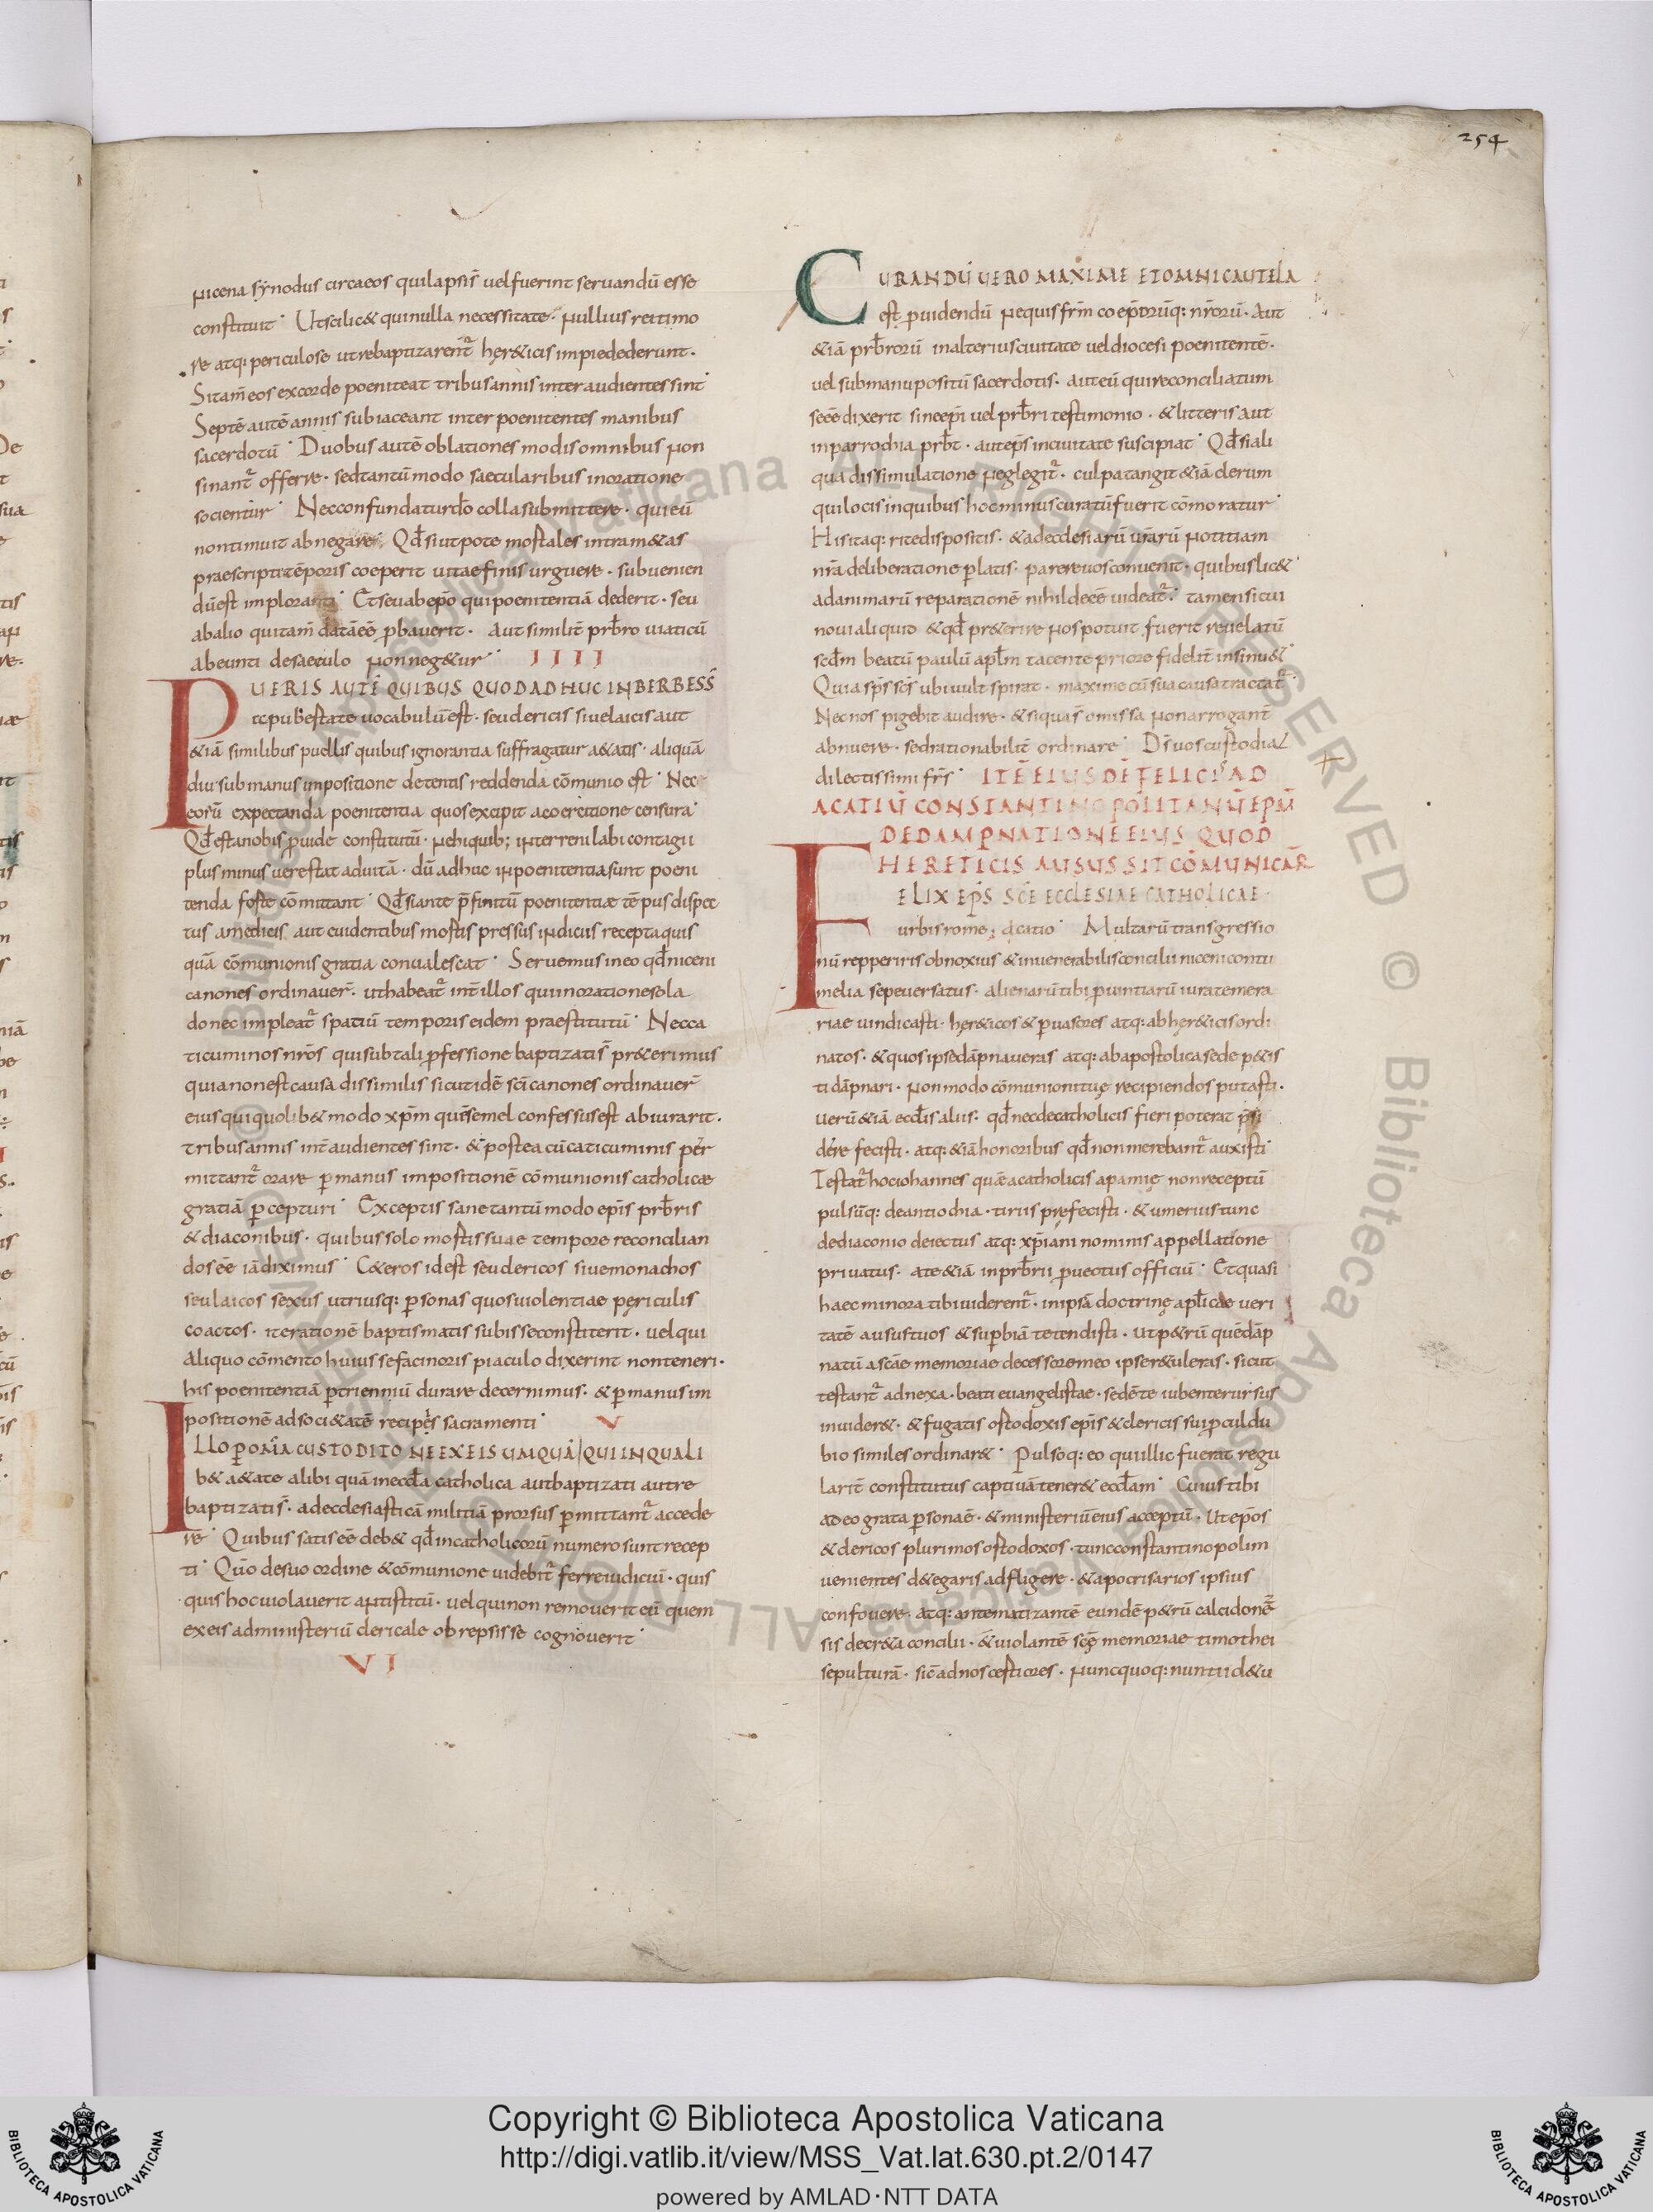 254
nicena synodus circa eos qui lapsi s̄ uel fuerint seruandū esse
constituit· Ut scilic& qui nulla necessitate· nullius rei timo
re atq: periculose ut rebaptizarent̄ her&icis impie dederunt·
Si tam̄ eos ex corde poeniteat tribus annis inter audientes sint·
Septē autē annis subiaceant inter poenitentes manibus
sacerdotū· Duobus autē oblationes modis omnibus non
sinant̄ offerre· sed tantū modo saecularibus in oratione
socientur· Nec confundatur dō colla submittere· qui eū
non timuit abnegare· Qd̄ si ut pote mortales intra m&as
praescripti tēporis coeperit uitae finis urguere· subuenien
dū est imploranti· Et seu ab ep̄o qui poenitentiā dederit· seu
ab alio qui tam̄ datā eē p̱bauerit· aut similit̄ prb̄ro uiaticū
abeunti de saeculo non neg&ur· IIII
PUERIS AUTĒ QUIBUS QUOD ADHUC INBERBES S̄
tc pubestate uocabulū est· seu clericis siue laicis aut
&iā similibus puellis quibus ignorantia suffragatur a&atis· aliquā
diu sub manus impositione detentis reddenda cōmunio est· Nec
eorū expectanda poenitentia quos excipit a coercitione censura·
Qd̄ est a nobis p̱uide constitutū· ne hi quib; interreni labi contagii
plus minus ue restat ad uitā· dū adhuc in poenitentia sunt poeni
tenda forte cōmittant· Qd̄ si ante p̄finitū poenitentiae tē pus dispec
tus a medicis aut euidentibus mortis pressus indiciis recepta quis
quā cōmunionis gratia conualescat· Seruemus in eo qd̄ niceni
canones ordinauer̄· ut habeat̄ int̄ illos qui in oratione sola
donec impleat̄ spatiū temporis eidem praestitutū· Nec ca
ticuminos nr̄os qui sub tali p̱fessione baptizati s̄ pr&erimus
quia non est causa dissimilis sicut idē sc̄i canones ordinauer̄
eius qui quolib& modo xp̄m quē semel confessus est abiurarit·
tribus annis int̄ audientes sint· & postea cū caticuminis per
mittant̄ orare p̱ manus impositionē cōmunionis catholicae
gratiā p̱cepturi· Exceptis sane tantū modo ep̄is prb̄ris
& diaconibus· quibus solo mortis suae tempore reconcilian
dos eē iā diximus· C&eros id est seu clericos siue monachos
seu laicos sexus utriusq: p̱sonas quos uiolentiae periculis
coactos· iterationē baptismatis subisse constiterit· uel qui
aliquo cōmento huius se facinoris piaculo dixerint non teneri·
his poenitentiā p̱ trienniū durare decernimus· & p̱ manus im
positionē ad soci&atē recipēs sacramenti· V
ILLO P̱ OM̄IA CUSTODITO NE EX EIS UMQUĀ/QUI IN QUALI
b& a&ate alibi quā in eccl̄a catholica aut baptizati aut re
baptizati s̄· ad ecclesiasticā militiā prorsus p̱mittant̄ accede
re· Quibus satis eē deb& qd̄ in catholicorū numero sunt recep
ti· Qm̄o de suo ordine & cōmunione uidebit̄ ferre iudiciū· quis
quis hoc uiolauerit antistitū· uel qui non remouerit eū quem
ex eis ad ministeriū clericale obrepsisse cognouerit·
VI
CURANDŪ UERO MAXIME ET OMNI CAUTELA
est p̱uidendū ne quis fr̄m coep̄orūq: nr̄orū· aut
&iā prb̄rorū in alterius ciuitate uel diocesi poenitentē·
uel sub manu positū sacerdotis· aut eū qui reconciliatum
se eē dixerit sine ep̄i uel prb̄ri testimonio· & litteris aut
in parrochia prb̄t· aut ep̄s in ciuitate suscipiat· Qd̄ si ali
qua dissimulatione neglegit̄· culpa tangit &iā clerum
qui locis in quibus hoc minus curatū fuerit cōmoratur·
His itaq: rite dispositis· & ad ecclesiarū urārū notitiam
nr̄a deliberatione p̱latis· parere uos conuenit· quibus lic&
ad animarū reparationē nihil deeē uideat̄· tamen si cui
noui aliquid & qd̄ pr&erire nos potuit fuerit reuelatū
scd̄m beatū paulū apl̄m tacente priore fidelit̄ insinu&·
Quia sp̄s sc̄s ubi uult spirat· maxime cū sua causa tractat̄·
Nec nos pigebit audire· & si qua s̄ omissa non arrogant̄
abnuere· sed rationabilit̄ ordinare· Ds̄ uos custodiat
dilectissimi fr̄s· ITĒ EIUSDĒ FELICIS AD
ACATIŪ CONSTANTINOPOLITANŪ EPM̄
DE DAMPNATIONE EIUS QUOD
HERETICIS AUSUS SIT CŌMUNICAR̄
FELIX EP̄S SCE ECCLESIAE CATHOLICAE
urbis rome; acatio· Multarū transgressio
nū repperiris obnoxius & in uenerabilis concilii niceni contu
melia sepe uersatus· alienarū tibi p̱uintiarū iura temera
riae uindicasti· her&icos & p̱uasores atq: ab her&icis ordi
natos· & quos ipse dāpnaueras atq: ab apostolica sede p&is
ti dāpnari· non modo cōmunioni tuę recipiendos putasti·
uerū &iā eccl̄is aliis· qd̄ nec de catholicis fieri poterat p̄si
dere fecisti· atq: &iā honoribus qd̄ non merebant̄ auxisti·
Testat̄ hoc iohannes quē a catholicis apamię non receptū
pulsūq: de antiochia· tiriis pręfecisti· & umerius tunc
de diaconio deiectus atq: xp̄iani nominis appellatione
priuatus· a te &iā in prb̄rii p̱uectus officiū· Et quasi
haec minora tibi uiderent̄· in ipsā doctrinę apl̄icae ueri
tatē ausus tuos & sup̱biā tetendisti· ut p&rū quē dāp
natū a sc̄ae memoriae decessore meo ipse r&uleras· sicut
testant̄ adnexa· beati euangelistae· sedē te iubente rursus
inuider&· & fugatis ostodoxis ep̄is & clericis sui p̱cul du
bio similes ordinar&· Pulsoq: eo qui illic fuerat regu
larit̄ constitutus captiuā tener& eccl̄am· Cuius tibi
adeo grata p̱sona ē· & ministeriū eius acceptū· Ut ep̄os
& clericos plurimos ostodoxos· tunc constantinopolim
uenientes d&egaris adfligere· & apocrisarios ipsius
confouere· atq: antematizantē eundē p&rū calcidonē
sis decr&a concilii· & uiolantē sc̄ę memoriae timothei
sepulturā· sic̄ ad nos cestiores· nunc quoq: nuntii d&u
Copyright © Biblioteca Apostolica Vaticana
http://digi.vatlib.it/view/MSS_Vat.lat.630.pt.2/0147
powered by AMLAD·NTT DATA
BIBLIOTECA APOSTOLICA VATICANA
BIBLIOTECA APOSTOLICA VATICANA